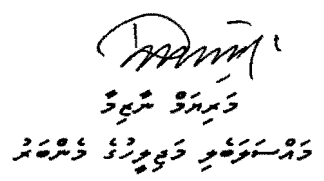 މަރިޔަމް ނާޒިމާ
މައްސަލަބެލި މަޖިލީހުގެ މެންބަރު